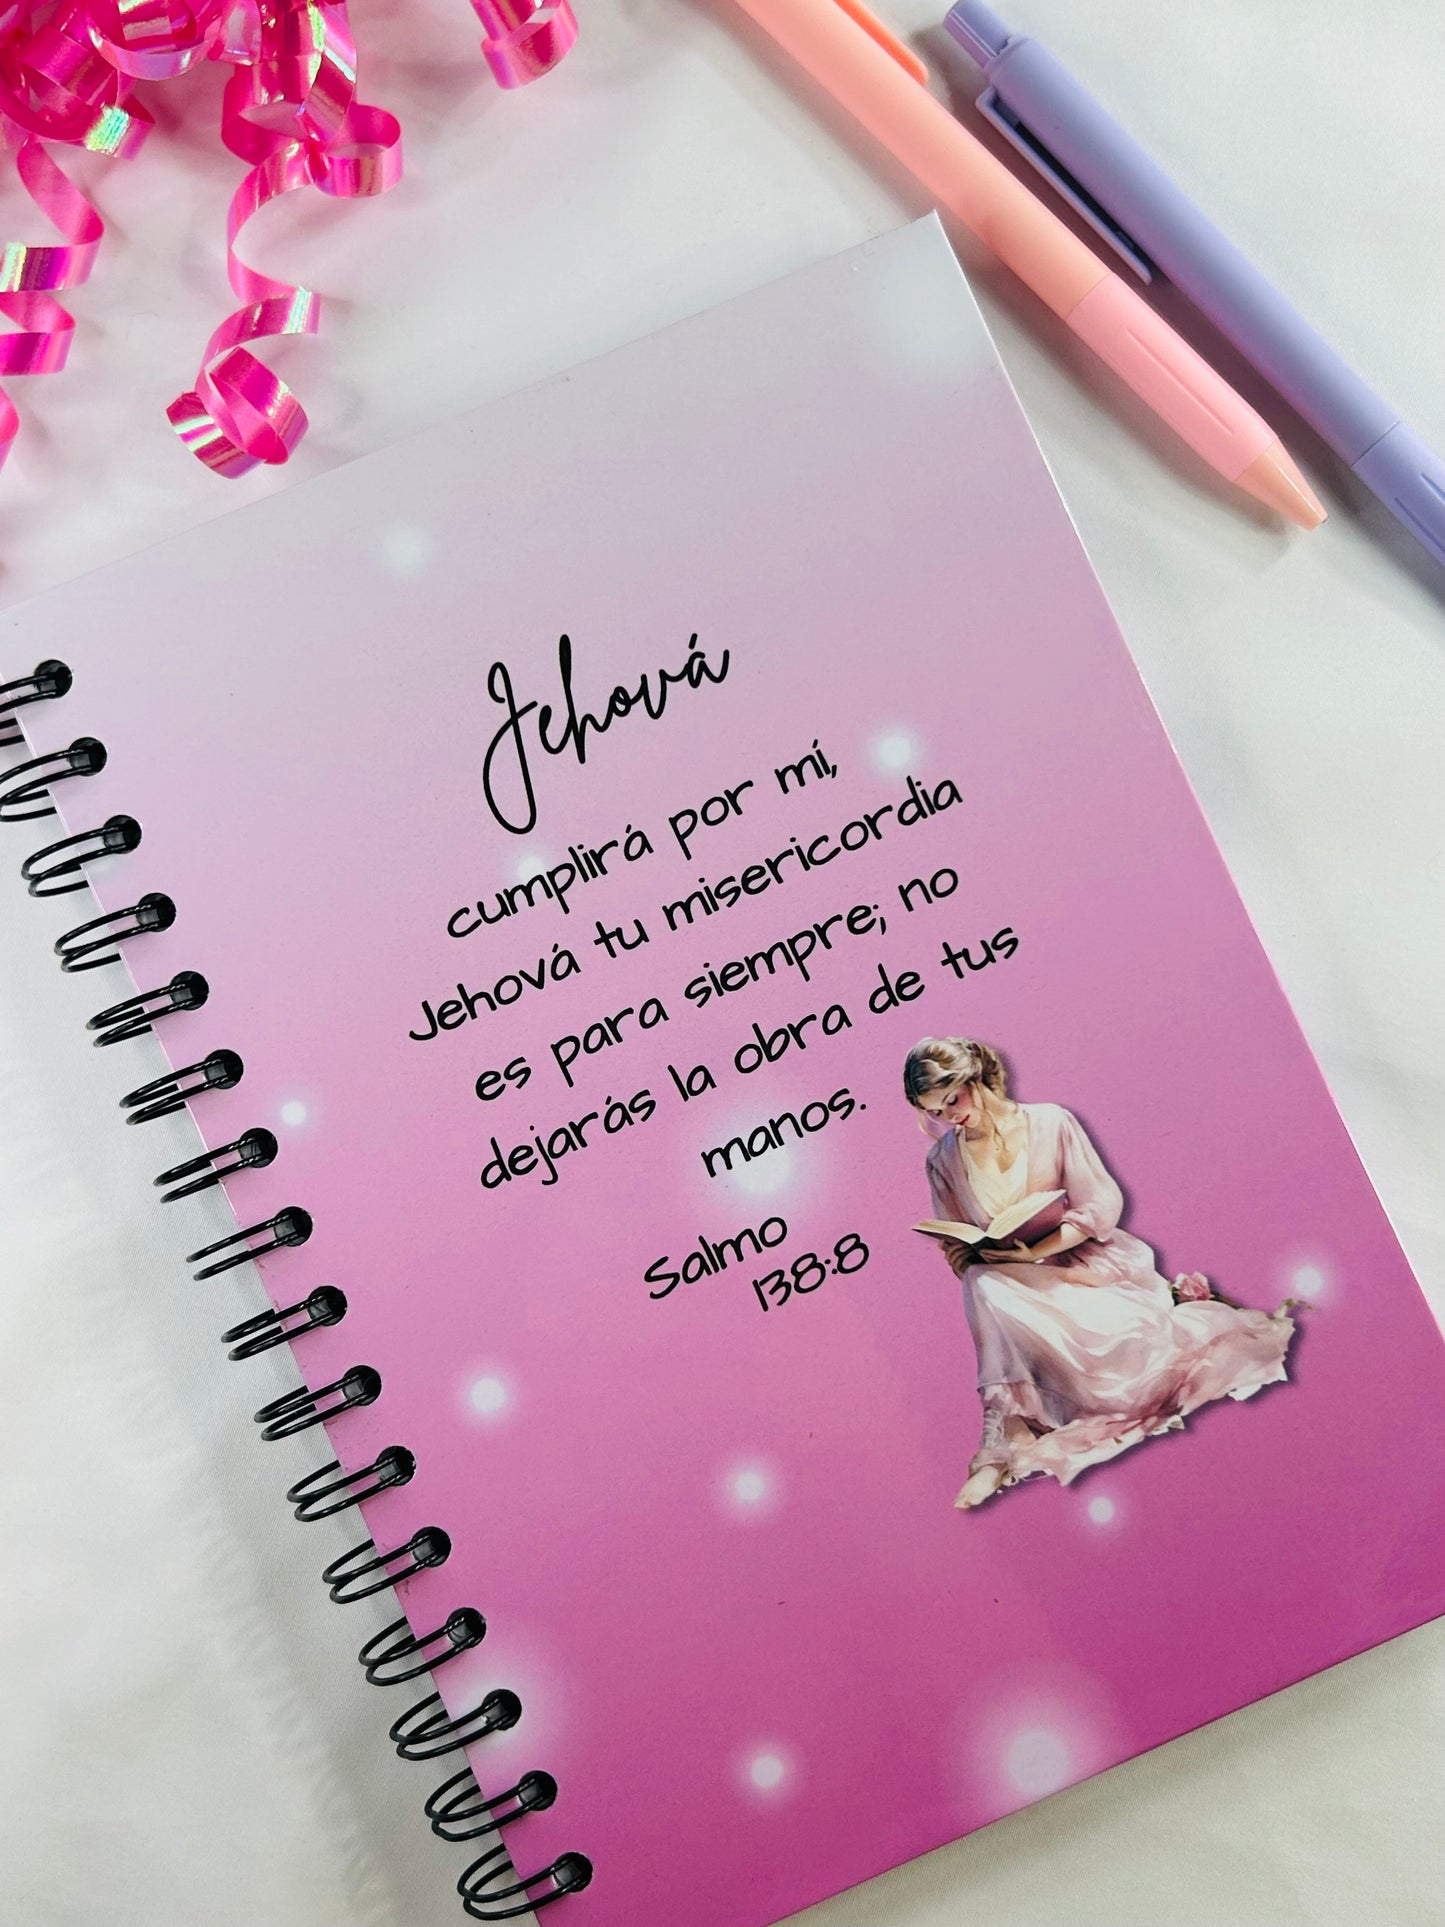 Jehová
cumplirá por mí,
Jehová tu misericordia
es para siempre; no
dejarás la obra de tus
manos.
Salmo
138:8